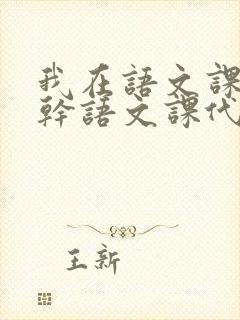 我在語文課
幹語文課代
王新